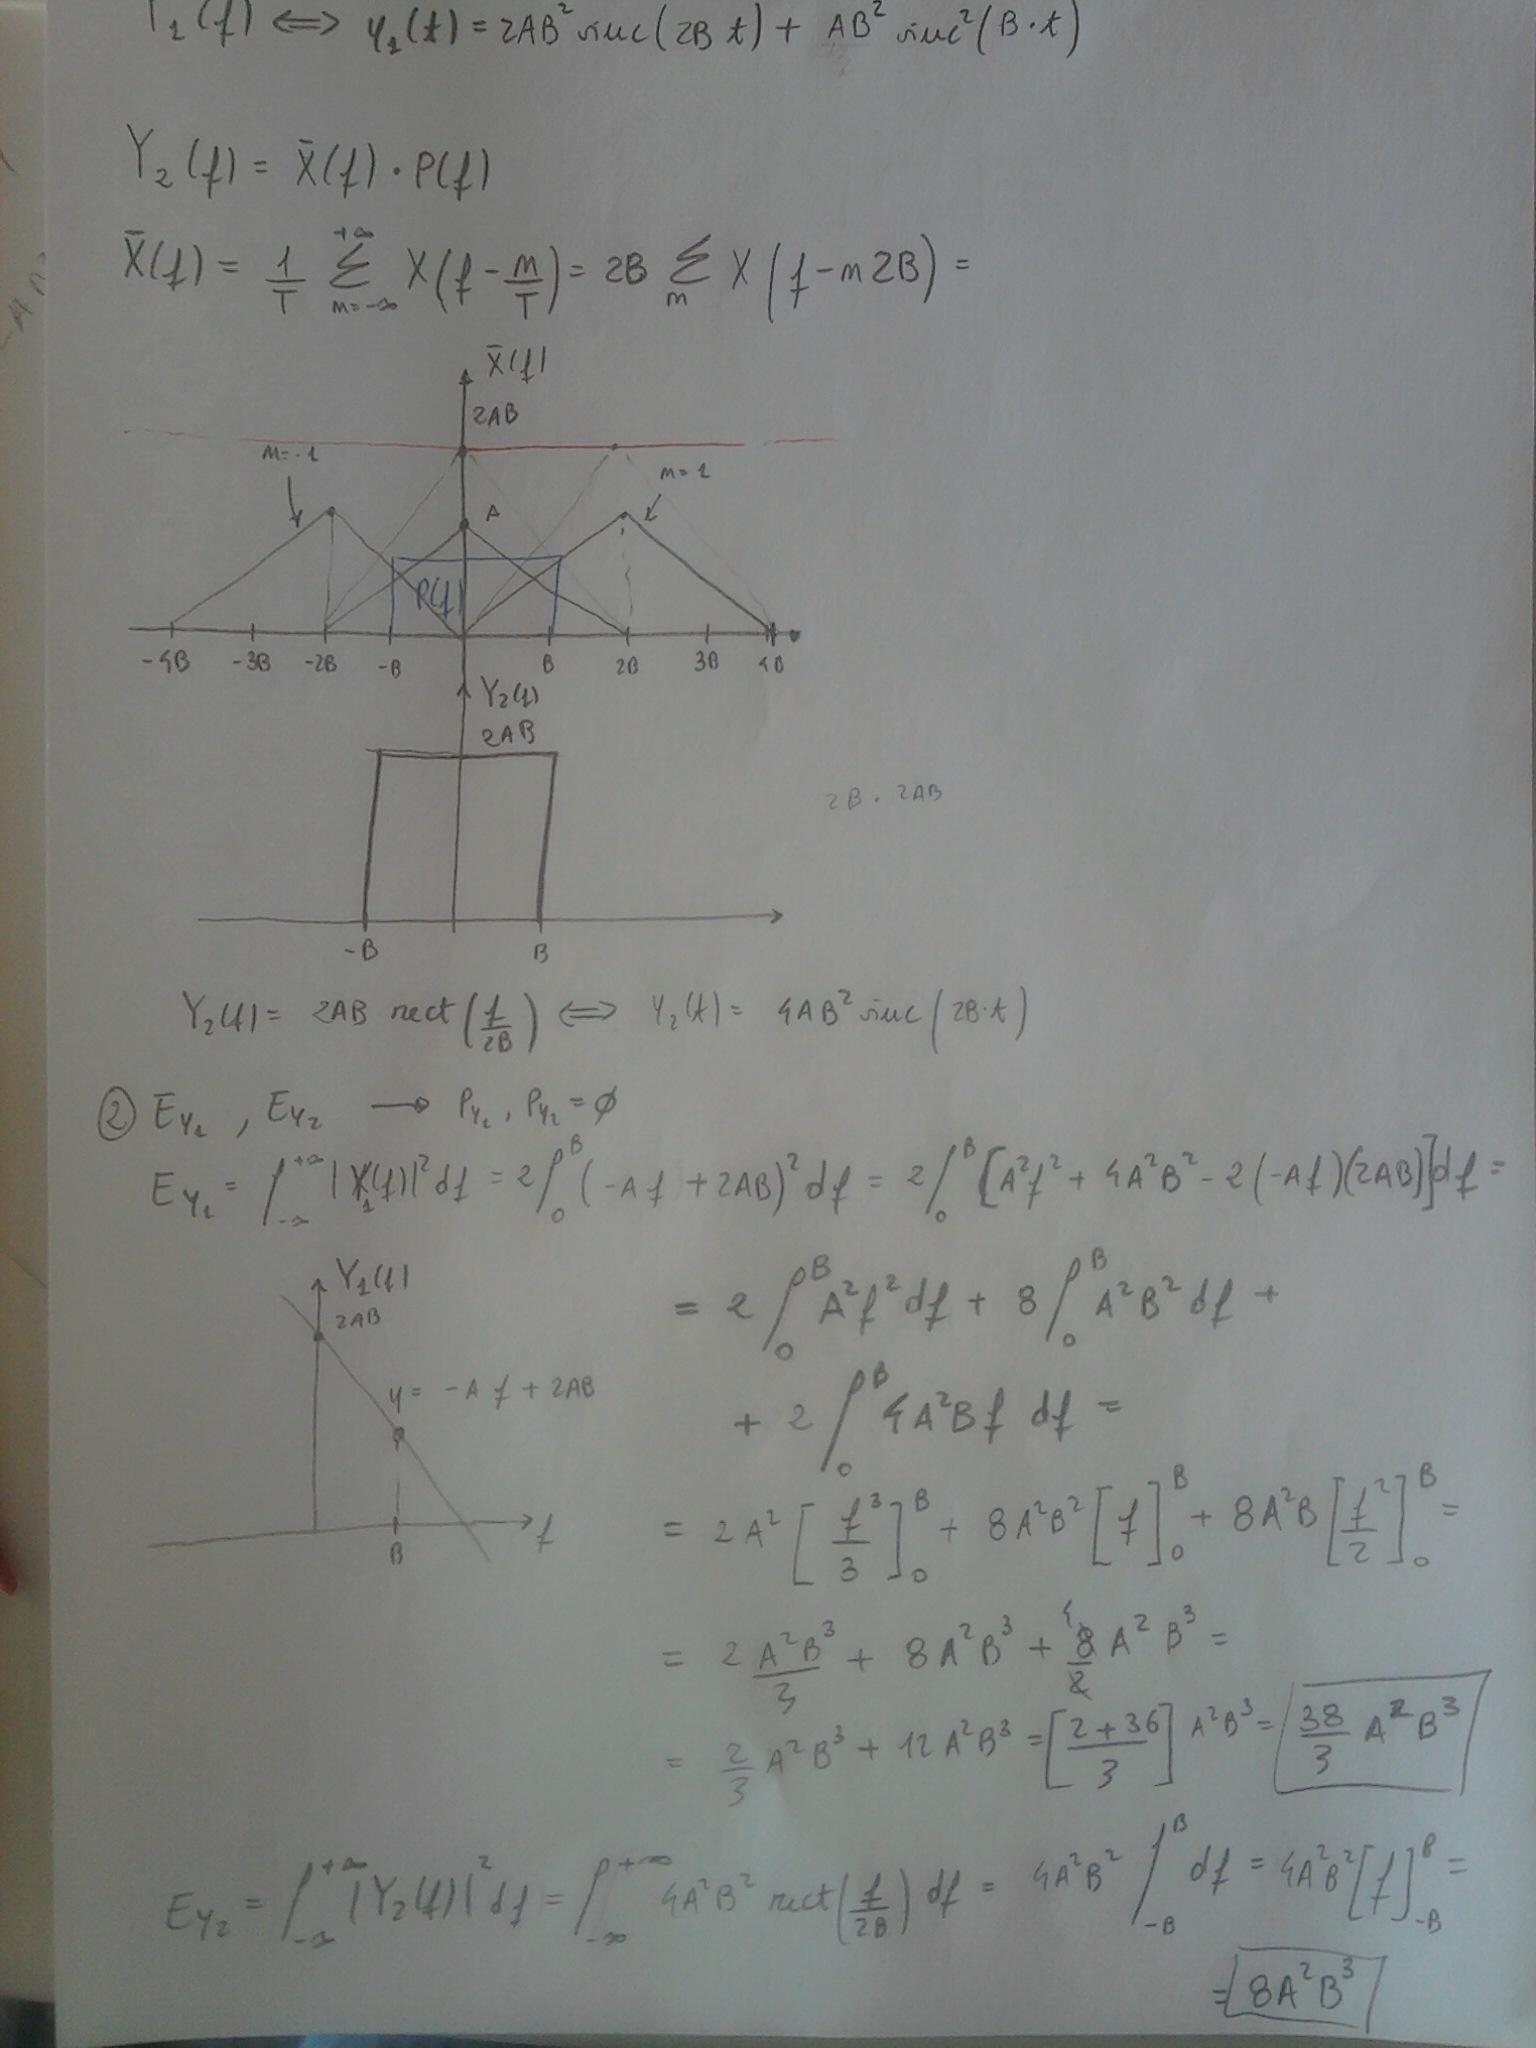 Y₁(f) ⟺ y₁(t) = 2AB² sinc(2B t) + AB² sinc²(B·t)
Y₂(f) = X̄(f) · P(f)
X̄(f) = 1/T Σ_{m=-∞}^{+∞} X(f - m/T) = 2B Σ_m X(f - m2B) =
X̄(f)
2AB
m=-1
m=1
A
P(f)
-4B -3B -2B -B B 2B 3B 4B
Y₂(f)
2AB
2B · 2AB
-B B
Y₂(f) = 2AB rect(f/2B) ⟺ y₂(t) = 4AB² sinc(2B·t)
② E_{Y₁}, E_{Y₂} → P_{Y₁}, P_{Y₂} = ∅
E_{Y₁} = ∫_{-∞}^{+∞} |Y₁(f)|² df = 2∫_0^B (-Af + 2AB)² df = 2∫_0^B [A²f² + 4A²B² - 2(-Af)(2AB)] df =
= 2∫_0^B A²f² df + 8∫_0^B A²B² df +
Y₁(f)
2AB
y = -Af + 2AB
B
f
+ 2∫_0^B 4A²Bf df =
= 2A² [f³/3]_0^B + 8A²B² [f]_0^B + 8A²B [f²/2]_0^B =
= 2 A²B³/3 + 8A²B³ + 8/2 4 A²B³ =
= 2/3 A²B³ + 12A²B³ = [2+36/3] A²B³ = 38/3 A²B³
E_{Y₂} = ∫_{-∞}^{+∞} |Y₂(f)|² df = ∫_{-∞}^{+∞} 4A²B² rect(f/2B) df = 4A²B² ∫_{-B}^B df = 4A²B² [f]_{-B}^B =
= 8A²B³